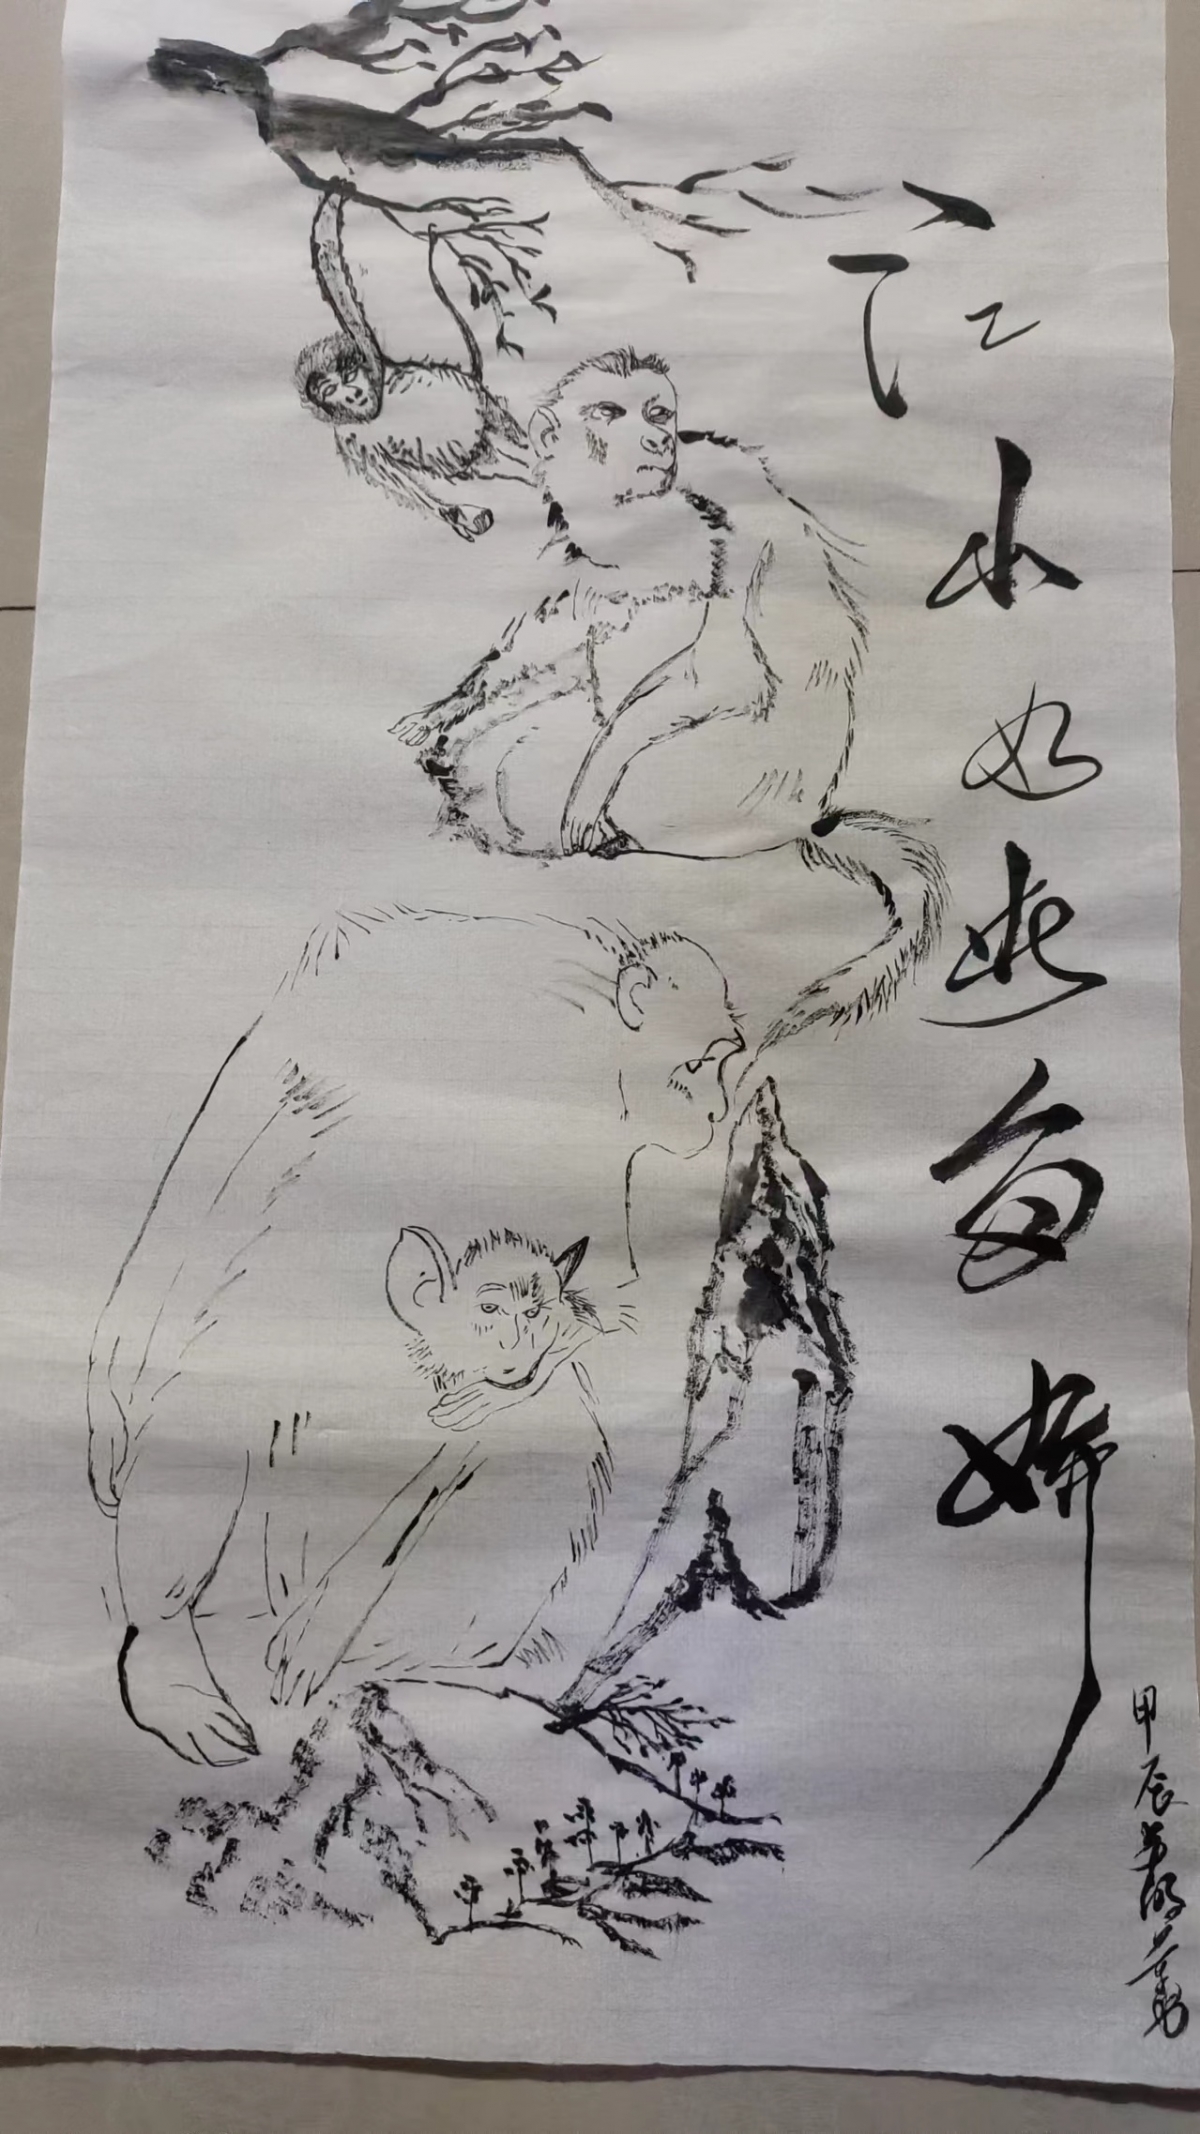 江山如此多娇
甲辰